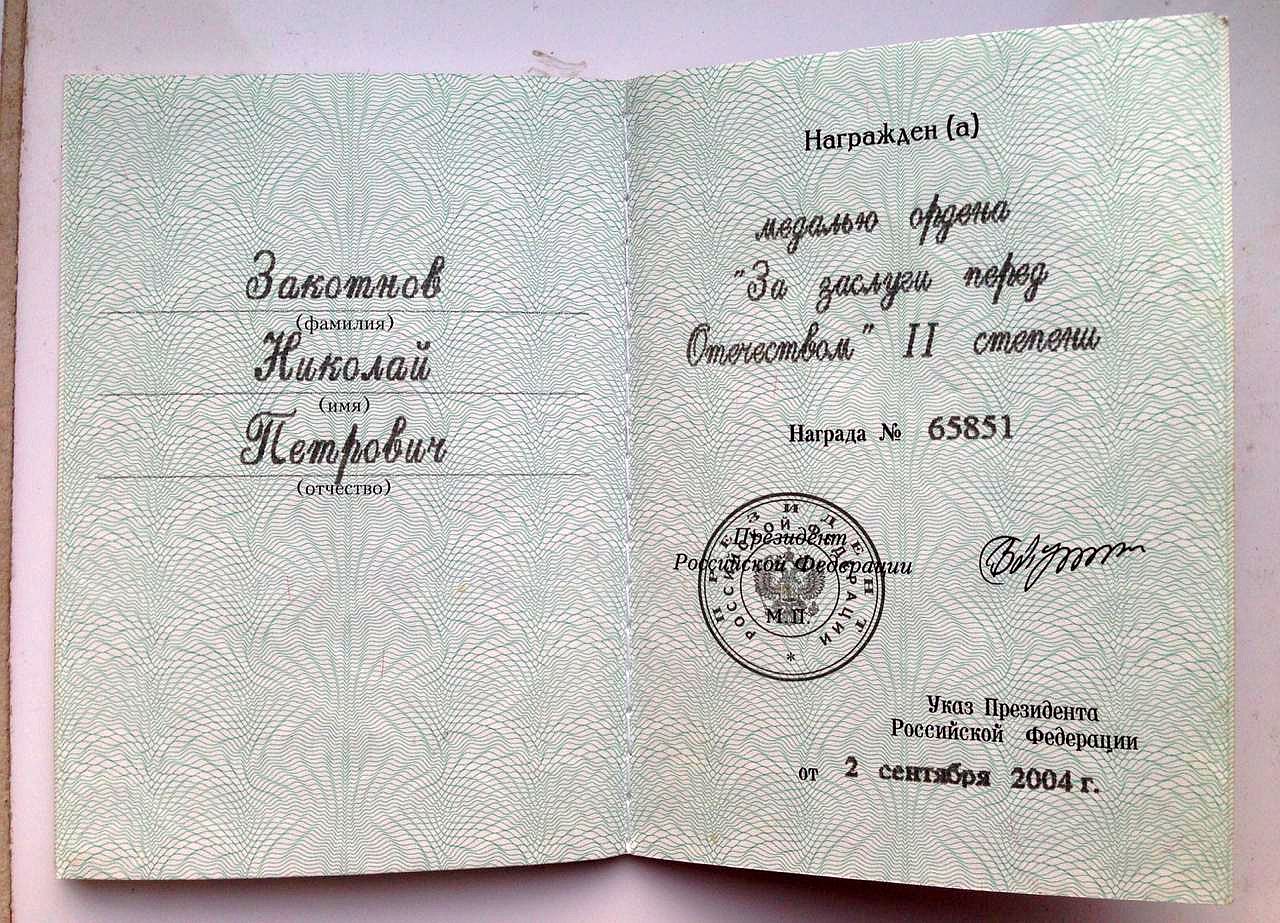 Закотнов
(фамилия)
Николай
(имя)
Петрович
(отчество)
Награжден (а)
медалью ордена
"За заслуги перед
Отечеством" II степени
Награда № 65851
Президент
Российской Федерации
М.П.
ПРЕЗИДЕНТ
РОССИЙСКОЙ ФЕДЕРАЦИИ
*
Указ Президента
Российской Федерации
от 2 сентября 2004 г.